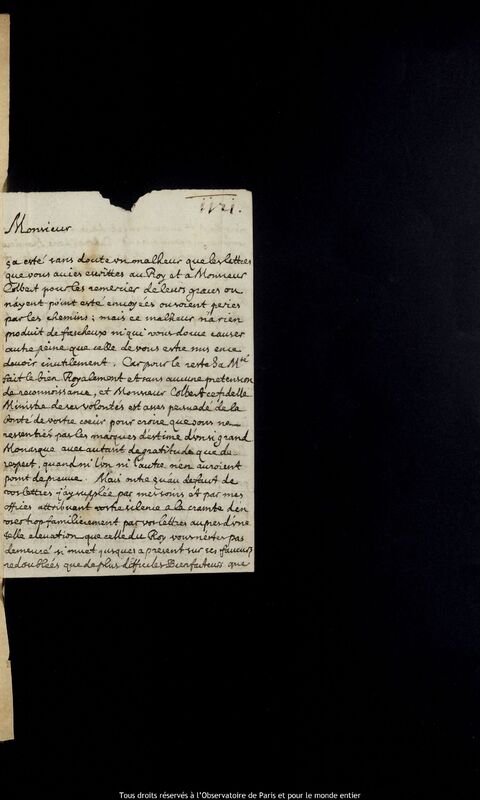 1121.
Monsieur
ça esté sans doute un malheur que les lettres
que vous aviés escrittes au Roy et a Monsieur
Colbert pour les remercier de leurs graces ou
n'ayent point esté envoyées ou soient peries
par les chemins; mais ce malheur n'a rien
produit de fascheux ni qui vous doive causer
autre peine que celle de vous estre mis en ce
devoir inutilement. Car pour le reste Sa M.té
fait le bien Royalement et sans aucune pretension
de reconnoissance, et Monsieur Colbert ce fidelle
Ministre de ses volontés est assés persuadé de la
bonté de vostre coeur pour croire que vous ne
ressentiés par les marques d'estime d'un si grand
Monarque avec autant de gratitude que de
respect, quand ni l'un ni l'autre n'en auroient
point de preuve. Mais outre qu'au defaut de
vos lettres j'ay suppléé par mes soins et par mes
offices attribuant vostre silence a la crainte d'en
user trop familierement par vos lettres aupres d'une
telle elevation que celle du Roy vous n'estes pas
demeuré si muet jusques a present sur ses faveurs
redoublées que de plus difficiles Bienfaiteurs que
Tous droits réservés à l'Observatoire de Paris et pour le monde entier